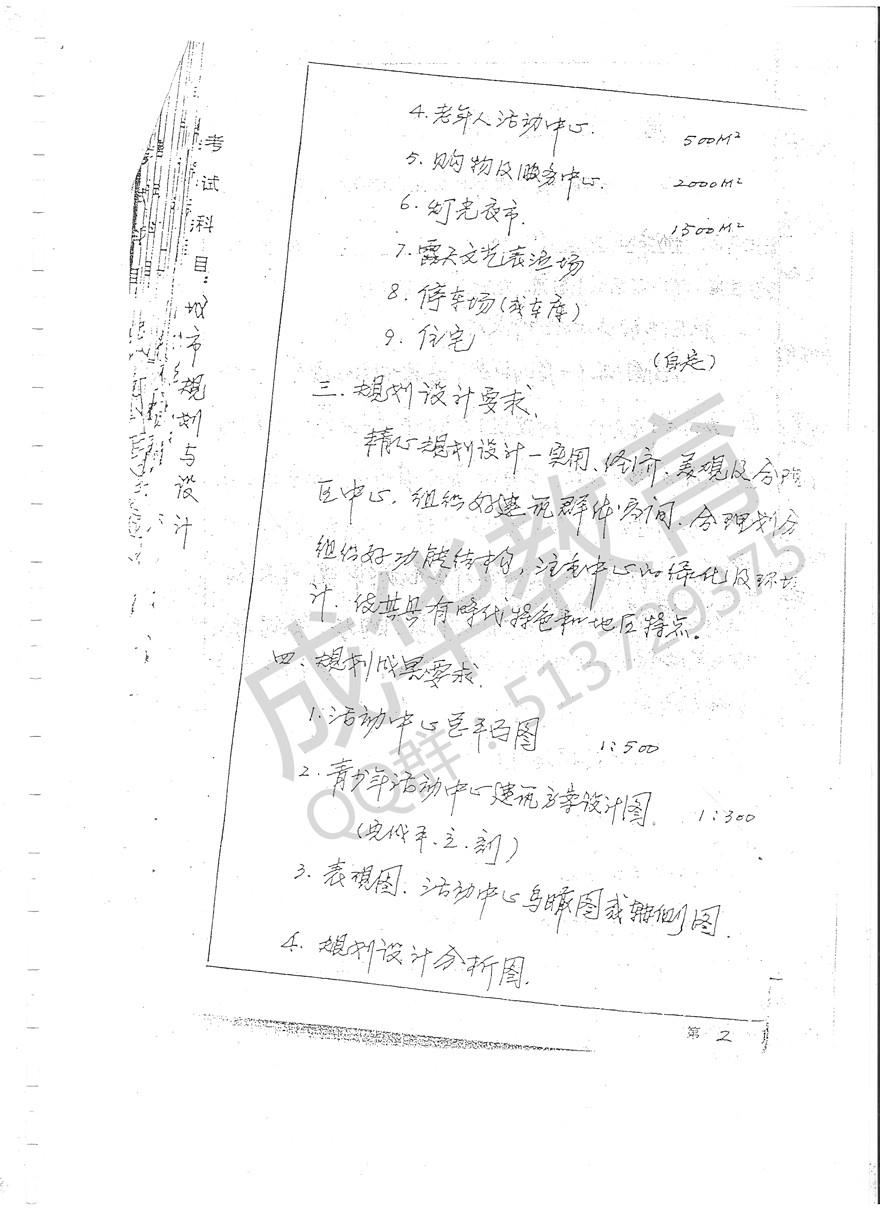 考试科目：城市规划与设计
4. 老年人活动中心. 500M²
5. 购物及服务中心. 2000M²
6. 灯光夜市. 1500M²
7. 露天文艺表演场
8. 停车场(或车库)
9. 住宅 (自定)
三. 规划设计要求.
精心规划设计一实用、经济、美观及合
区中心. 组织好建筑群体空间. 合理划分
组织好功能结构, 注意中心的绿化及环境
计. 使其具有時代特色和地区特点。
四、规划成果要求.
1. 活动中心总平面图 1:500
2. 青少年活动中心建筑方案设计图. 1:300
(包括平.立.剖)
3. 表现图. 活动中心鸟瞰图或轴侧图.
4. 规划设计分析图.
第 2 页
成华教育
QQ群：513729375